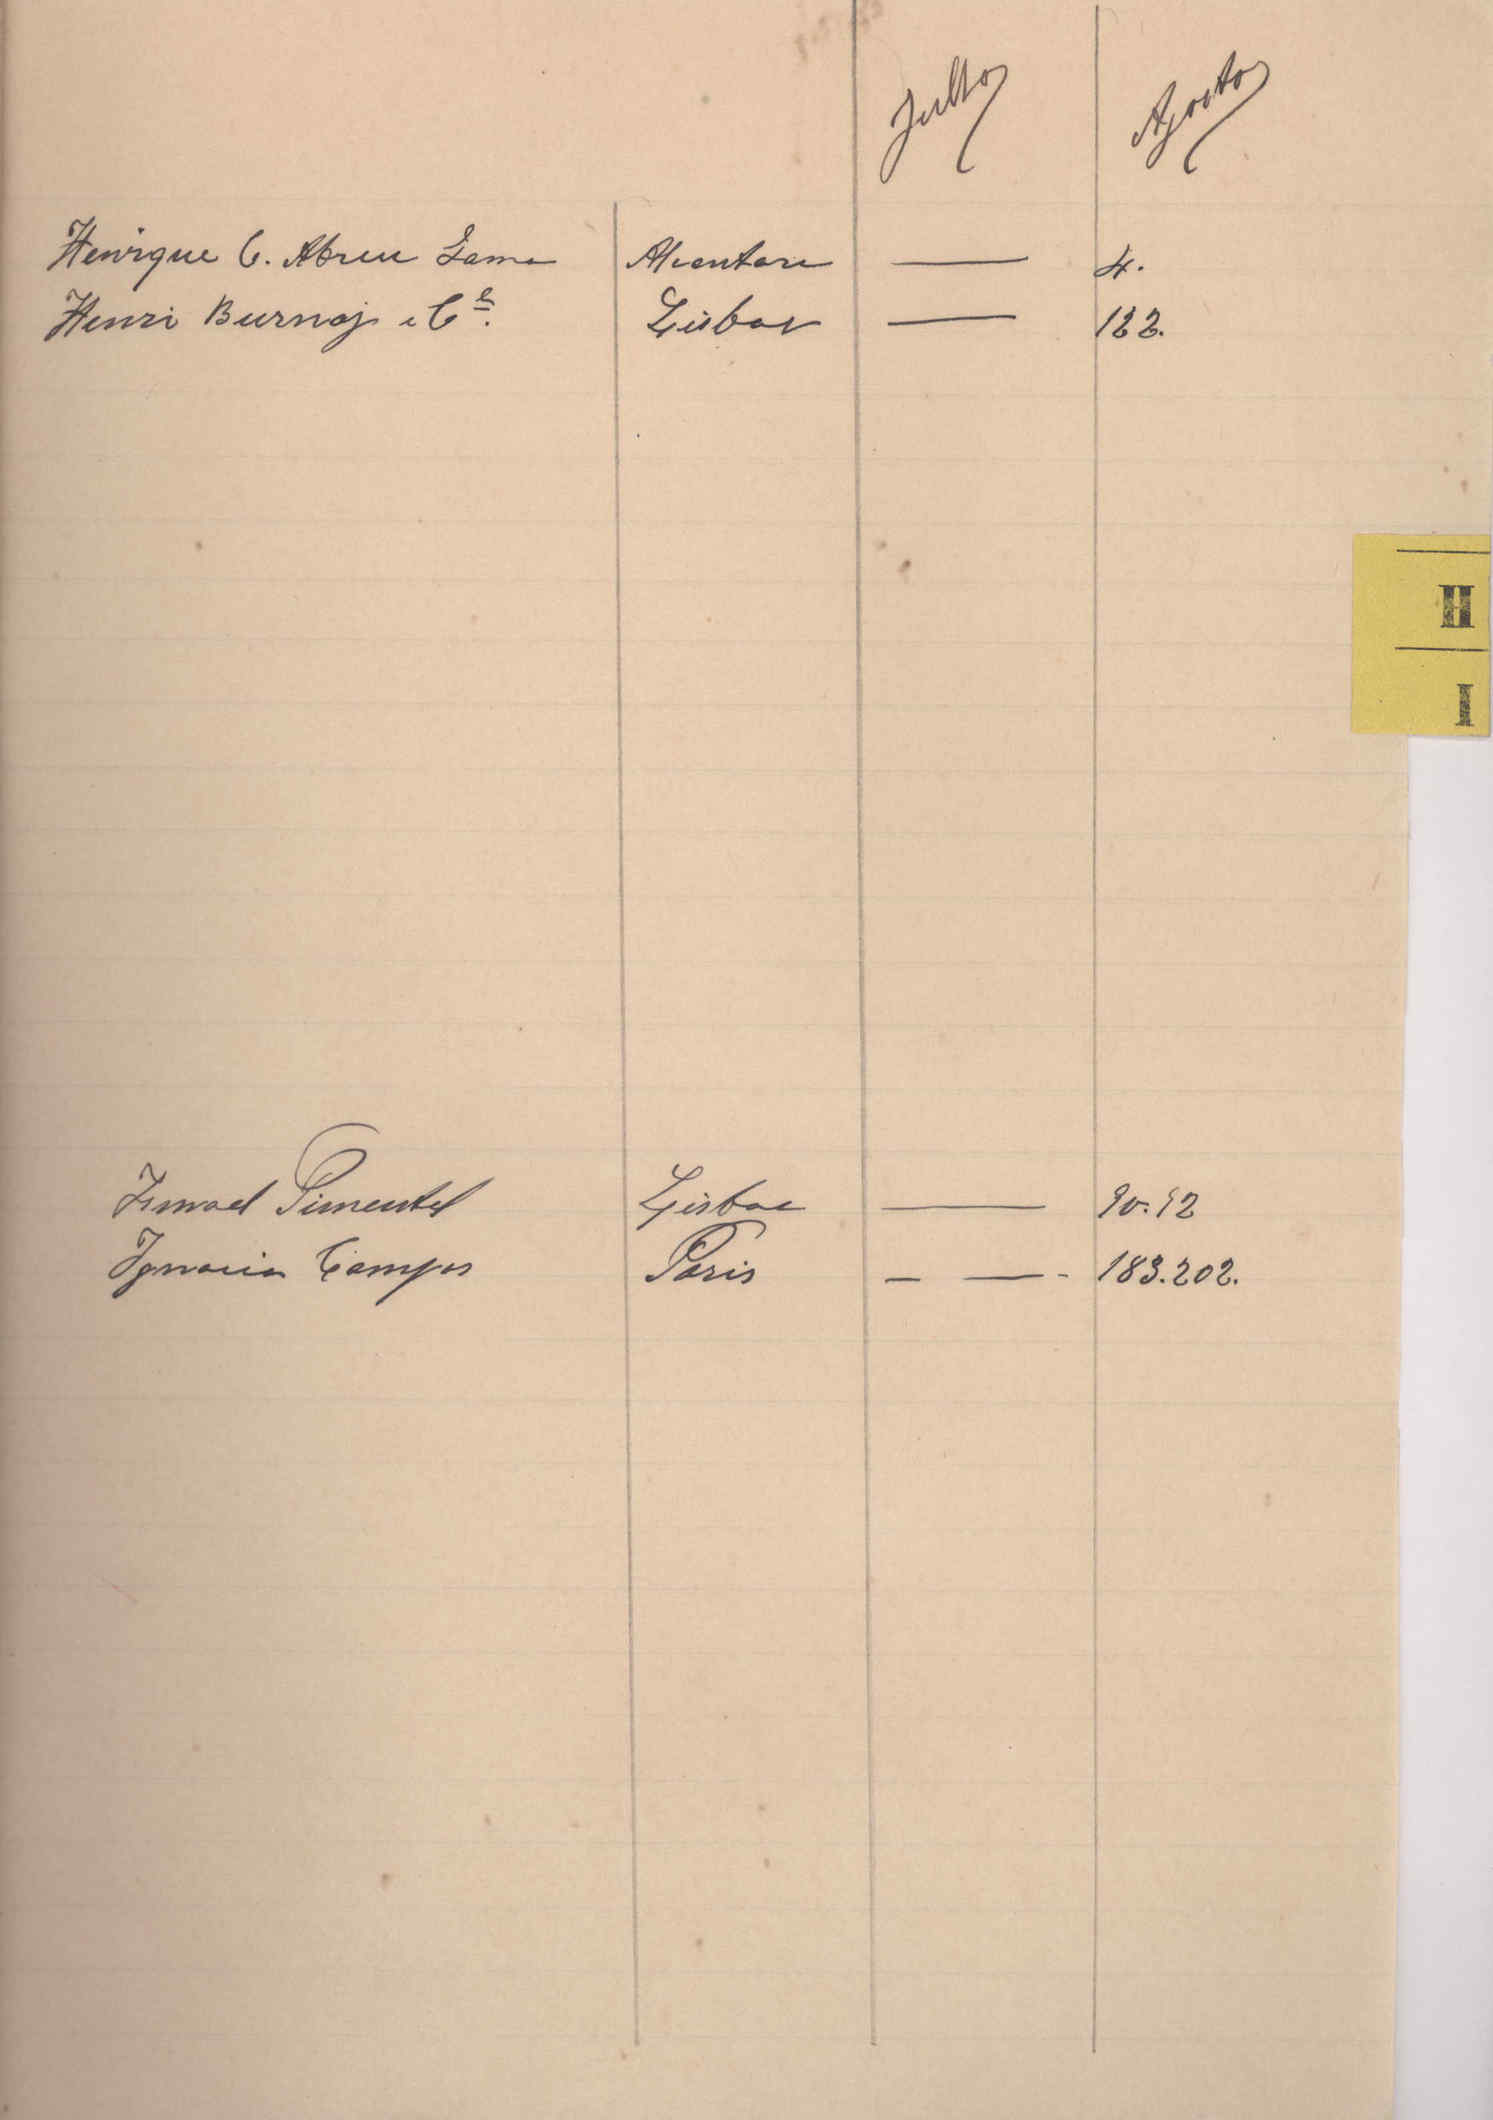 Julho Agosto
Henrique C. Abreu Gama Alcantara — 4.
Henri Burnay e Cª. Lisboa — 122.
H
I
Ismael Pimentel Lisboa — 90.92
Ignacio Campos Paris — — - 183.202.